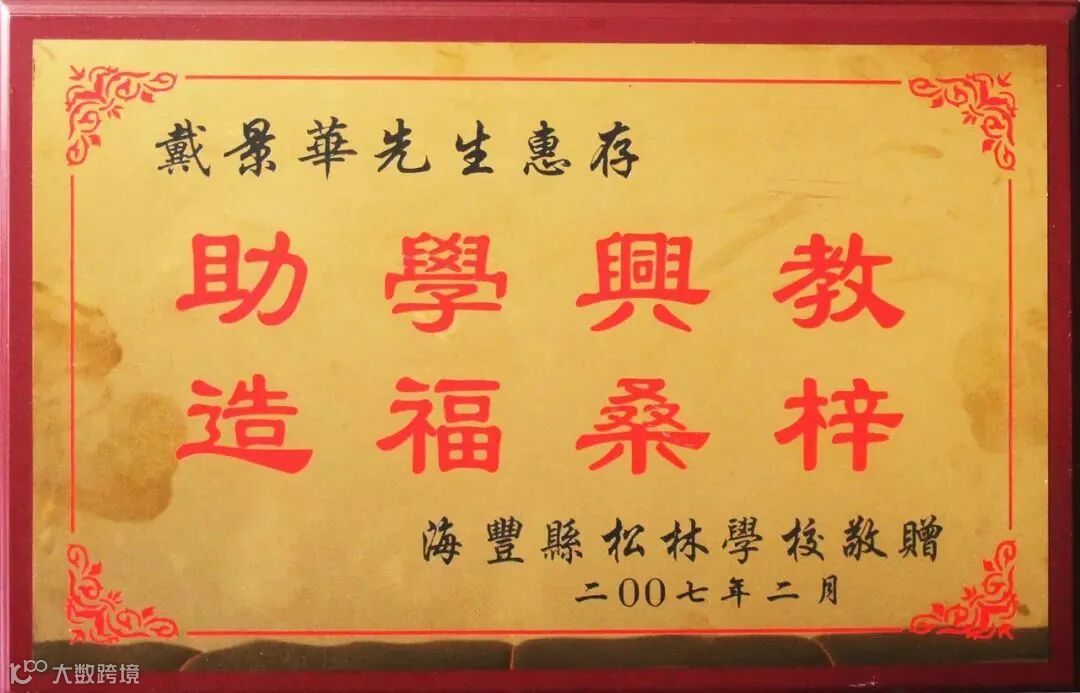 戴景華先生惠存
助學興教
造福桑梓
海豐縣松林學校敬贈
二00七年二月
大数跨境